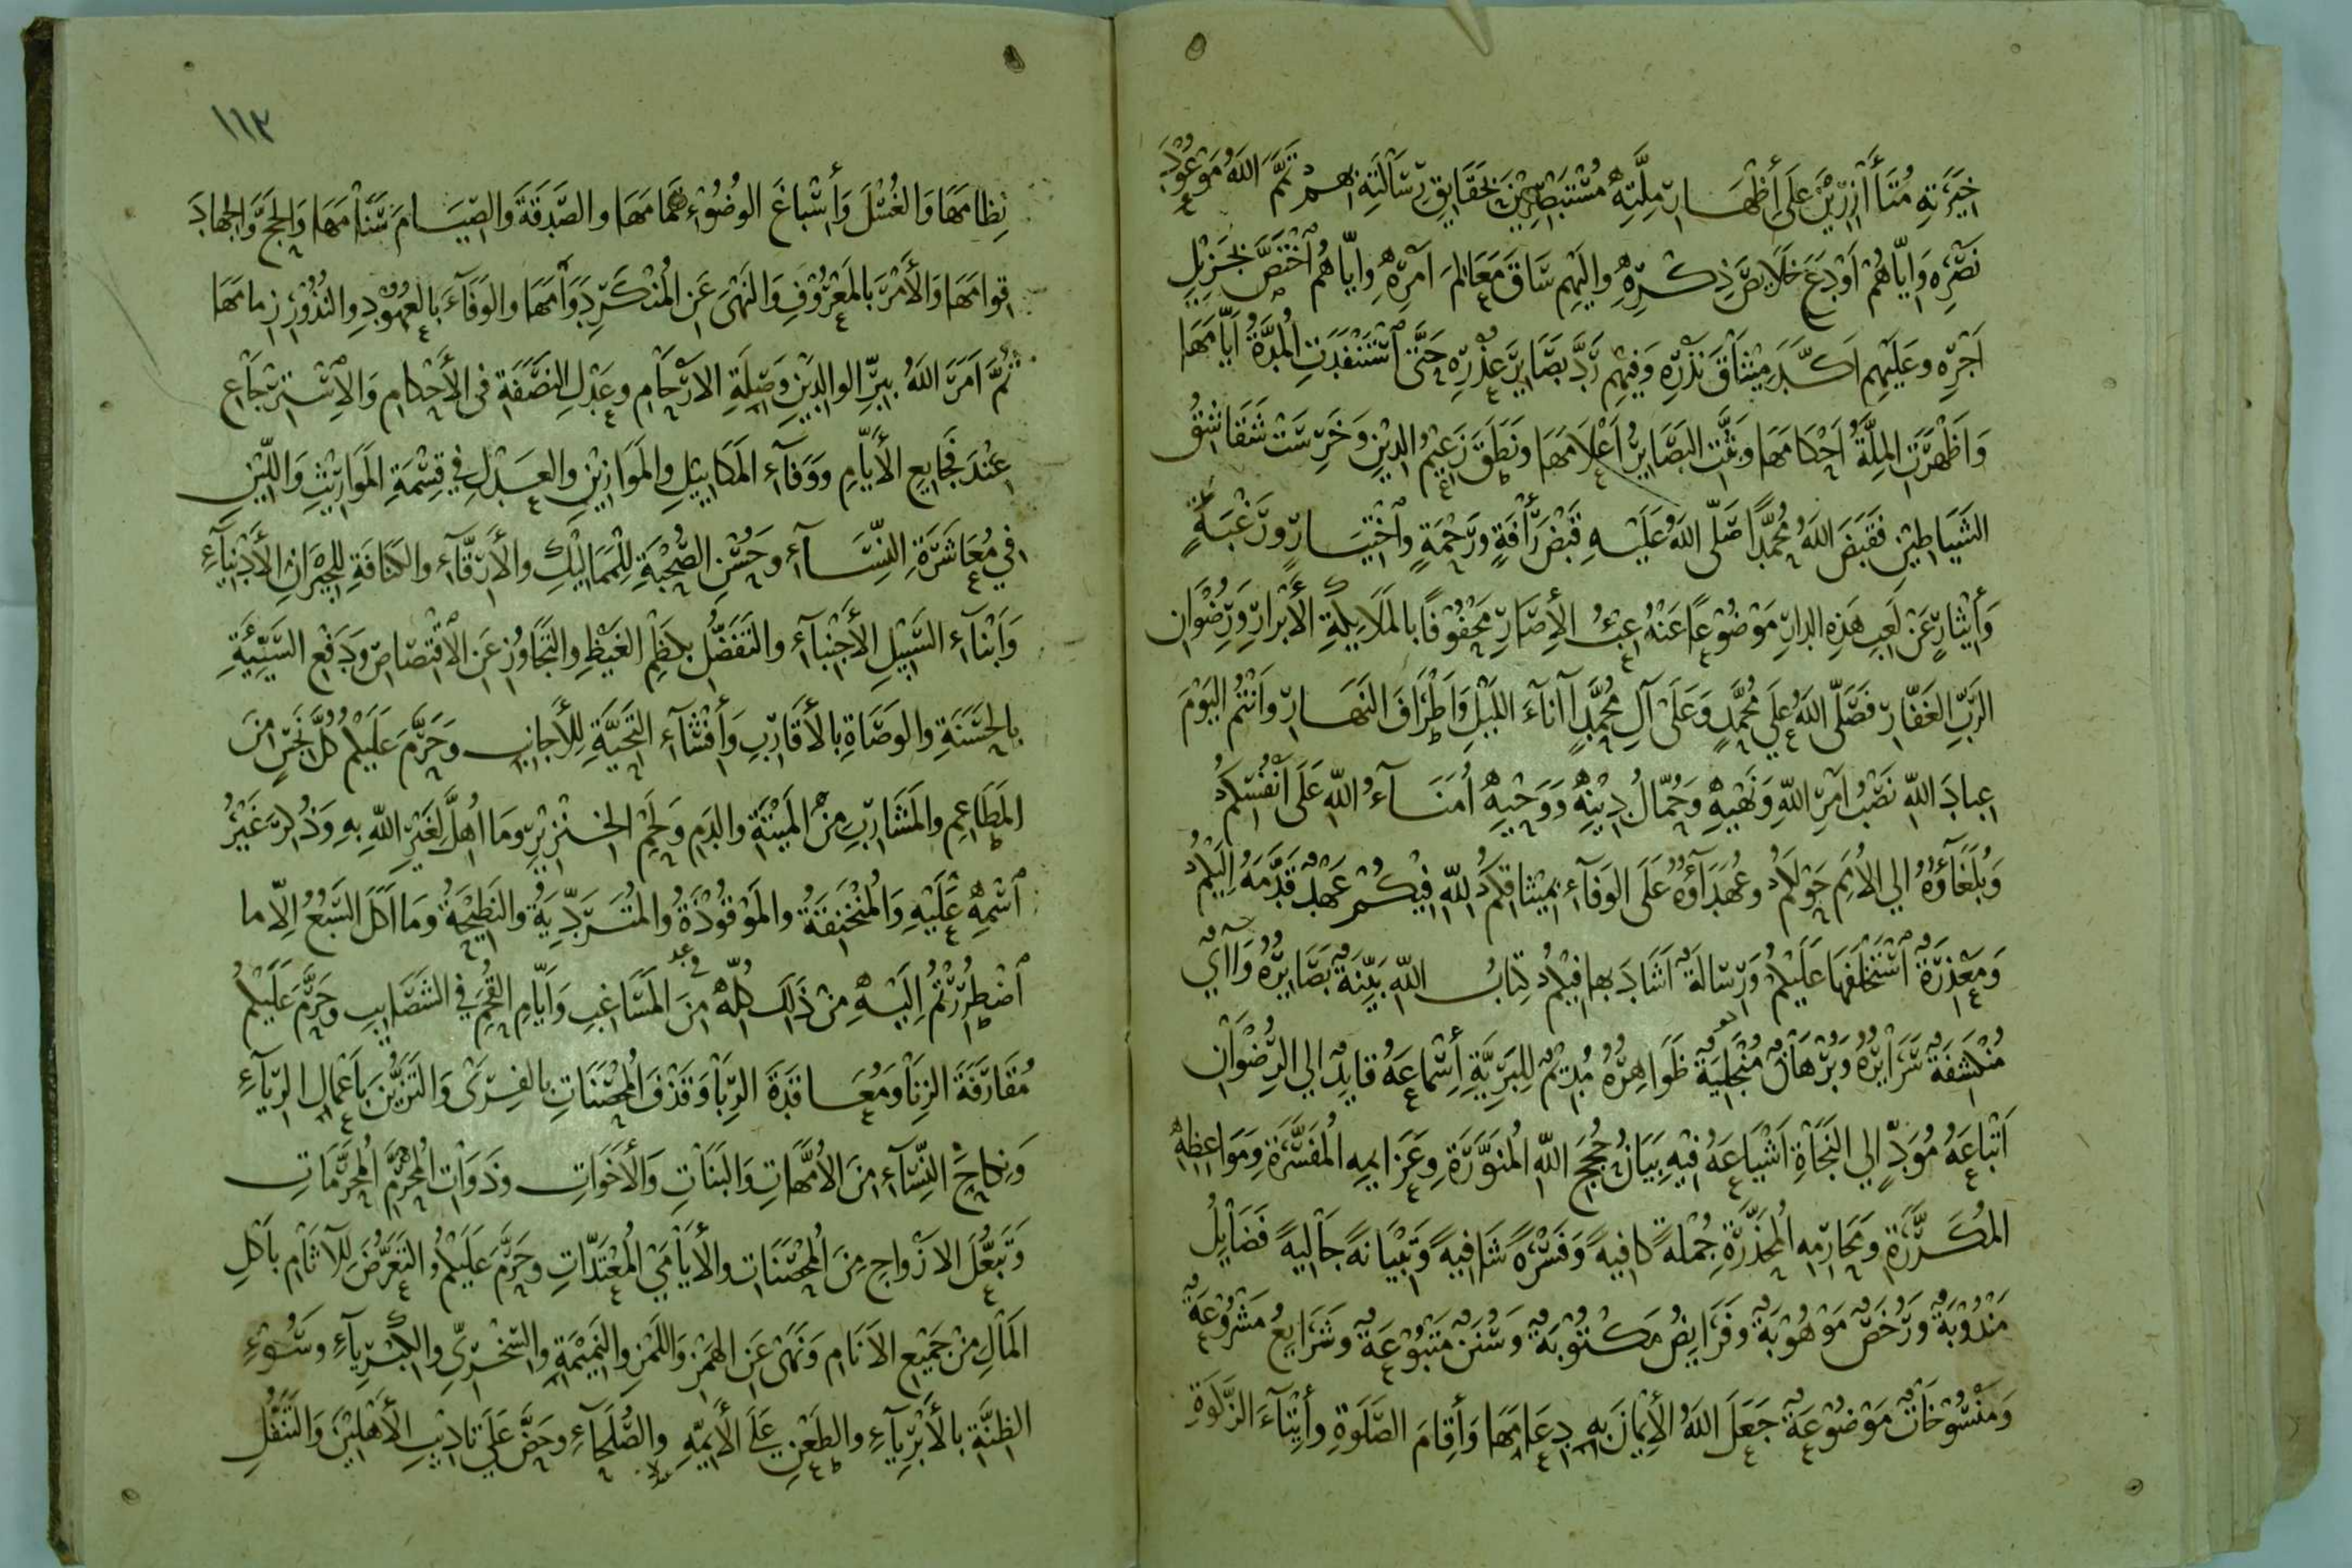 خِيَرَتِهِ مُتَأَازِرِيْنَ عَلَى أَظْهَارِ مِلَّتِهِ مُسْتَبْصِرِيْنَ بِحَقَايِقِ رِسَالَتِهِ بِهِمْ تَمَّمَ اللهُ مَوْعُوْدَ
نَصْرِهِ وَايّاهُمْ اَوْدَعَ خَلَايِصَ ذِكْرِهِ واليْهِم سَاقَ مَعَالِمَ اَمْرِهِ وايّاهُم اخْتَصَّ بِجَزِيْلِ
اَجْرِهِ وعَلَيْهِم اَكَّدَ مِيْثَاقَ نَذْرِهِ وَفِيْهِم رَدَّ بَصَايِرَ عُذْرِهِ حَتَّى اسْتَنْفَدَتِ المُدَّةُ اَيّامَهَا
وَاَظْهَرَتِ المِلَّةُ اَحْكَامَهَا وَبَثَّتِ البَصَايِرُ اَعْلَامَهَا ونَطَقَ زَعِيْمُ الدِيْنِ وَخَرِسَتْ شَقَاشِقُ
الشَيَاطِيْنِ فَقَبَضَ اللهُ مُحَمَّدًا صَلَّى اللهُ عَلَيْهِ قَبْضَ رَأْفَةٍ ورَحْمَةٍ واخْتِيَارٍ ورَغْبَةٍ
وَأيْثَارٍ عَنْ لَعِبِ هَذِهِ الدارِ مَوْضُوْعًا عَنْهُ عِبْءُ الأِصَارِ مَحْفُوْفًا بالمَلَايِكَةِ الأَبْرَارِ وَرِضْوَانِ
الرَبِّ الغَفَّارِ فَصَلَّى اللهُ عَلَى مُحَمَّدٍ وَعَلَى آلِ مُحَمَّدٍ اآنَآءَ اللَيْلِ وَاَطْرَافَ النَهَارِ وَاَنْتُمُ اليَوْمَ
عِبادَ اللهِ نَصْبُ اَمْرِ اللهِ وَنَهْيِهِ وَحُمّالُ دِيْنِهِ وَوَحْيِهِ اُمَنَآءُ اللهِ عَلَى اَنْفُسِكُمْ
وَبُلَغَآؤُهُ الي الأُمَمِ حَوْلَكُمْ وعُهَدَآؤُهُ عَلَى الوَفَآءِ بِمِيْثاقِكُمْ للهِ فِيْكُمْ عَهْدٌ قَدَّمَهُ اِلَيْكُمْ
وَمَعْذِرَةٌ اسْتَخْلَفَهَا عَلَيْكُمْ وَرِسَالَةٌ اَشَادَ بها فِيْكُمْ كِتابُ اللهِ بَيِّنَةٌ بَصَايِرُهُ وَاآيٌ
مُنْكَشِفَةٌ سَرَايِرُهُ وَبُرْهَانٌ مُنْجَلِيَةٌ ظَوَاهِرُهُ مُدِيْمٌ لِلبَرِيَّةِ أَسْمَاعَهُ قايِدٌ الي الرِضْوَانِ
اَتْبَاعَهُ مُوَدٍّ الي النَجَاةِ اَشْيَاعَهُ فِيْهِ بَيَانُ حُجَجِ اللهِ المُنَوَّرَةِ وعَزَايِمِهِ المُفَسَّرَةِ ومَوَاعِظِهِ
المُكَرَّرَةِ ومَحَارِمِهِ المُحَذَّرَةِ جُمْلَةً كافِيةً وَفَسْرَهً شَافِيةً وَتِبْيَانهً جَالِيةً فَضَايِلُ
مَنْدُوْبَةٌ وَرُخَصٌ مَوْهُوْبَةٌ وفَرَايِضُ مَكْتُوْبَةٌ وَسُنَنٌ مَتْبُوْعَةٌ وشَرَايِعُ مَشْرُوْعَةٌ
وَمَنْسُوْخَاتٌ مَوْضُوْعَةٌ جَعَلَ اللهُ الأِيْمَانَ بِهِ دِعَامَهَا وَأِقامَ الصَّلَوةِ وأِيْتَآءَ الزَّكَوةِ
١١٣
نِظامَهَا وَالغُسْلَ وَأَسْباغَ الوُضُوْءِ تَمَامَهَا والصَّدَقَةَ والصِيَامَ سَنَامَهَا وَالحَجَّ وَالجِهادَ
قِوامَهَا وَالأَمْرَ بالمَعْرُوْفِ وَالنَهْيَ عَنِ المُنْكَرِ دَوَامَهَا والوَفَآءَ بَالعُهُوْدِ والنُذُوْرِ زِمامَهَا
ثُمَّ اَمَرَ اللهُ بِبِرِّ الوالِدَيْنِ وَصِلَةِ الارْحَامِ وعَدْلِ النَصَفَةِ فى الأَحْكامِ وَالاِسْتِرْجَاعِ
عِنْدَ فَجَايِعِ الأَيَّامِ ووَفآءِ المَكَايِيْلِ والمَوَازِيْنِ والعَدْلِ فِي قِسْمَةِ المَوَارِيْثِ وَاللّيْنِ
فِي مُعَاشَرَةِ النِّسَآءِ وحَسْنِ الصُّحْبَةِ لِلْمَمَالِيْكِ والأَرِقَّآءِ والكَنَافَةِ لِلْجِيْرَانِ الأَدْنِيَآءِ
وَاَبْنآءِ السَّبِيْلِ الأَجْنِبَآءِ والتَفَضُّلِ بكَظْمِ الغَيْظِ والتَجَاوُزِ عَنِ الاقْتِصَاصِ وَدَفْعِ السَيِّئَةِ
بالحَسَنَةِ والوَصَاةِ بالأَقَارِبِ وَأَفْشَآءِ التَحِيَّةِ لِلأَجَانِبِ وحَرَّمَ عَلَيْكُمْ كُلَّ نَجِسٍ مِنَ
المَطَاعِمِ والمَشَارِبِ مِنَ المَيْتَةِ والدَمِ وَلَحْمِ الخنْزِيْرِ ومَا اُهِلَّ لِغَيْرِ اللهِ بِهِ وَذُكِرَ غَيْرُ
اسْمِهِ عَلَيْهِ وَالمُنْخَنِقَةُ والمَوْقُوْذَةُ والمُتَرَدِّيَةُ والنَطِيْحَةُ ومَا اَكَلَ السَّبُعُ اِلّا ما
اضْطُرِرْتُمُ اِلَيْهِ مِنْ ذَلِكَ كُلِّهِ مِنَ المَسَاغِبِ وَأيّامِ القُحَمِ فِي النَصَايِبِ وحَرَّمَ عَلَيْكُمْ
مُقَارَفَةَ الزِنَا ومُعَاقَدَةَ الرِبَا وَقَذْفَ المُحْصَنَاتِ بالفِرْيِ وَالتَزَيُّنَ بأَعْمالِ الرِيَآءِ
وَنِكاحَ النِّسَآءِ مِنَ الأُمَّهَاتِ وَالبَنَاتِ وَالأَخَوَاتِ وذَوَاتِ المَحْرَمِ المُحَرَّمَاتِ
وَتَبَعُّلَ الازْواجِ مِنَ المُحْصَنَاتِ والأَيَامَي المُعْتَدَّاتِ وحَرَّمَ عَلَيْكُمُ التَعَرُّضَ لِلآثَامِ بأَكْلِ
المَالِ مِنْ جَمِيْعِ الاَنَامِ وَنَهَى عَنِ الهَمْزِ وَاللَمْزِ والنَمِيْمَةِ والسّخْرِيِّ والكِبْرِيآءِ وسُوْءِ
الظِنَّةِ بالأَبْرِيآءِ والطَعْنِ عَلَى الأَيِمَّةِ والصُّلَحَآءِ وحَضَّ عَلَى تادِيْبِ الأَهْلِيْنَ وَالتَنَفُّلِ